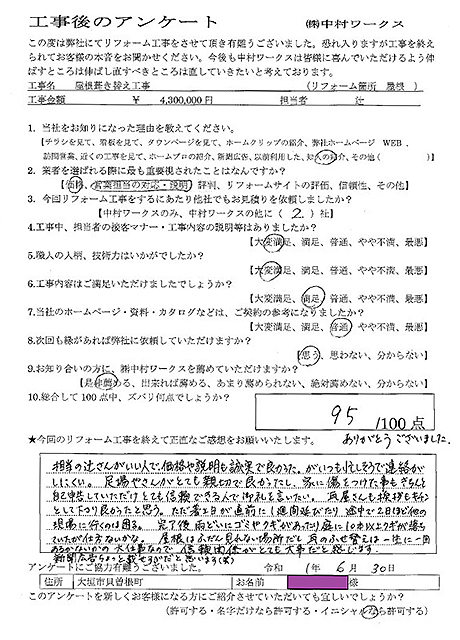 工事後のアンケート　㈱中村ワークス
この度は弊社にてリフォーム工事をさせて頂き有難うございました。恐れ入りますが工事を終え
られてお客様の本音をお聞かせください。今後も中村ワークスは皆様に喜んでいただけるよう伸
ばすところは伸ばし直すべきところは直していきたいと考えております。
工事名　屋根葺き替え工事　（リフォーム箇所　屋根　）
工事金額　￥　4,300,000円　担当者　辻
1. 当社をお知りになった理由を教えてください。
【チラシを見て、看板を見て、タウンページを見て、ホームクリップの紹介、弊社ホームページ　WEB、
訪問営業、近くの工事を見て、ホームプロの紹介、新聞広告、以前利用した、知人の紹介、その他（　　）】
2. 業者を選ばれる際に最も重要視されたことはなんですか？
【価格、営業担当の対応・説明、評判、リフォームサイトの評価、信頼性、その他】
3. 今回リフォーム工事をするにあたり他社でもお見積りを依頼しましたか？
【中村ワークスのみ、中村ワークスの他に（ 2 ）社】
4.工事中、担当者の接客マナー・工事内容の説明等はありましたか？
【大変満足、満足、普通、やや不満、最悪】
5.職人の人柄、技術力はいかがでしたか？
【大変満足、満足、普通、やや不満、最悪】
6.工事内容はご満足いただけましたでしょうか？
【大変満足、満足、普通、やや不満、最悪】
7.当社のホームページ・資料・カタログなどは、ご契約の参考になりましたか？
【大変満足、満足、普通、やや不満、最悪】
8.次回も縁があれば弊社に依頼していただけますか？
【思う、思わない、分からない】
9.お知り合いの方に、㈱中村ワークスを薦めていただけますか？
【是非薦める、出来れば薦める、あまり薦められない、絶対薦めない、分からない】
10.総合して100点中、ズバリ何点でしょうか？
95 /100点
★今回のリフォーム工事を終えて正直なご感想をお願いいたします。　ありがとうございました。
担当の辻さんがいい人で、価格や説明も誠実で良かった。がいつも忙しそうで連絡が
しにくい。足場やさんがとても親切で良かったし、家に傷をつけた事もきちんと
自己申告していただけとても信頼できる人で御礼を言いたい。瓦屋さんも挨拶もキチン
として下さり良かったと思う。ただ着工日が直前に1週間延びたり途中で2日ほど他の
現場に行くのは困る。完了後雨どいにゴミやクギがあったり庭に10本以上クギが落ち
ていたが仕方ないかな。屋根はふだん見えない場所だし瓦のふせ替えは一生に一回
あるかないかの大仕事なので信頼関係がとても大事だと感じます。
新聞広告ちょっと載せすぎだと思います(笑)
アンケートにご協力有難うございました。　令和　1年　6月　30日
住所　大垣市貝曽根町　お名前　様
このアンケートを新しくお客様になる方にご紹介させていただいても宜しいでしょうか？
（許可する・名字だけなら許可する・イニシャルなら許可する）